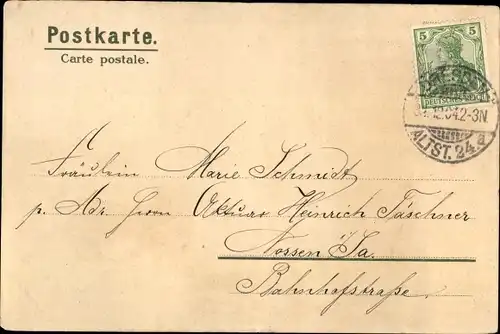 Postkarte.
Carte postale.
5 5
DEUTSCHES REICH
DRESDEN
12.04.2-3N
ALTST. 24 a
Fräulein Marie Schmidt
p. Adr. Herrn Heinrich Täschner
Nossen i/Sa.
Bahnhofstraße.